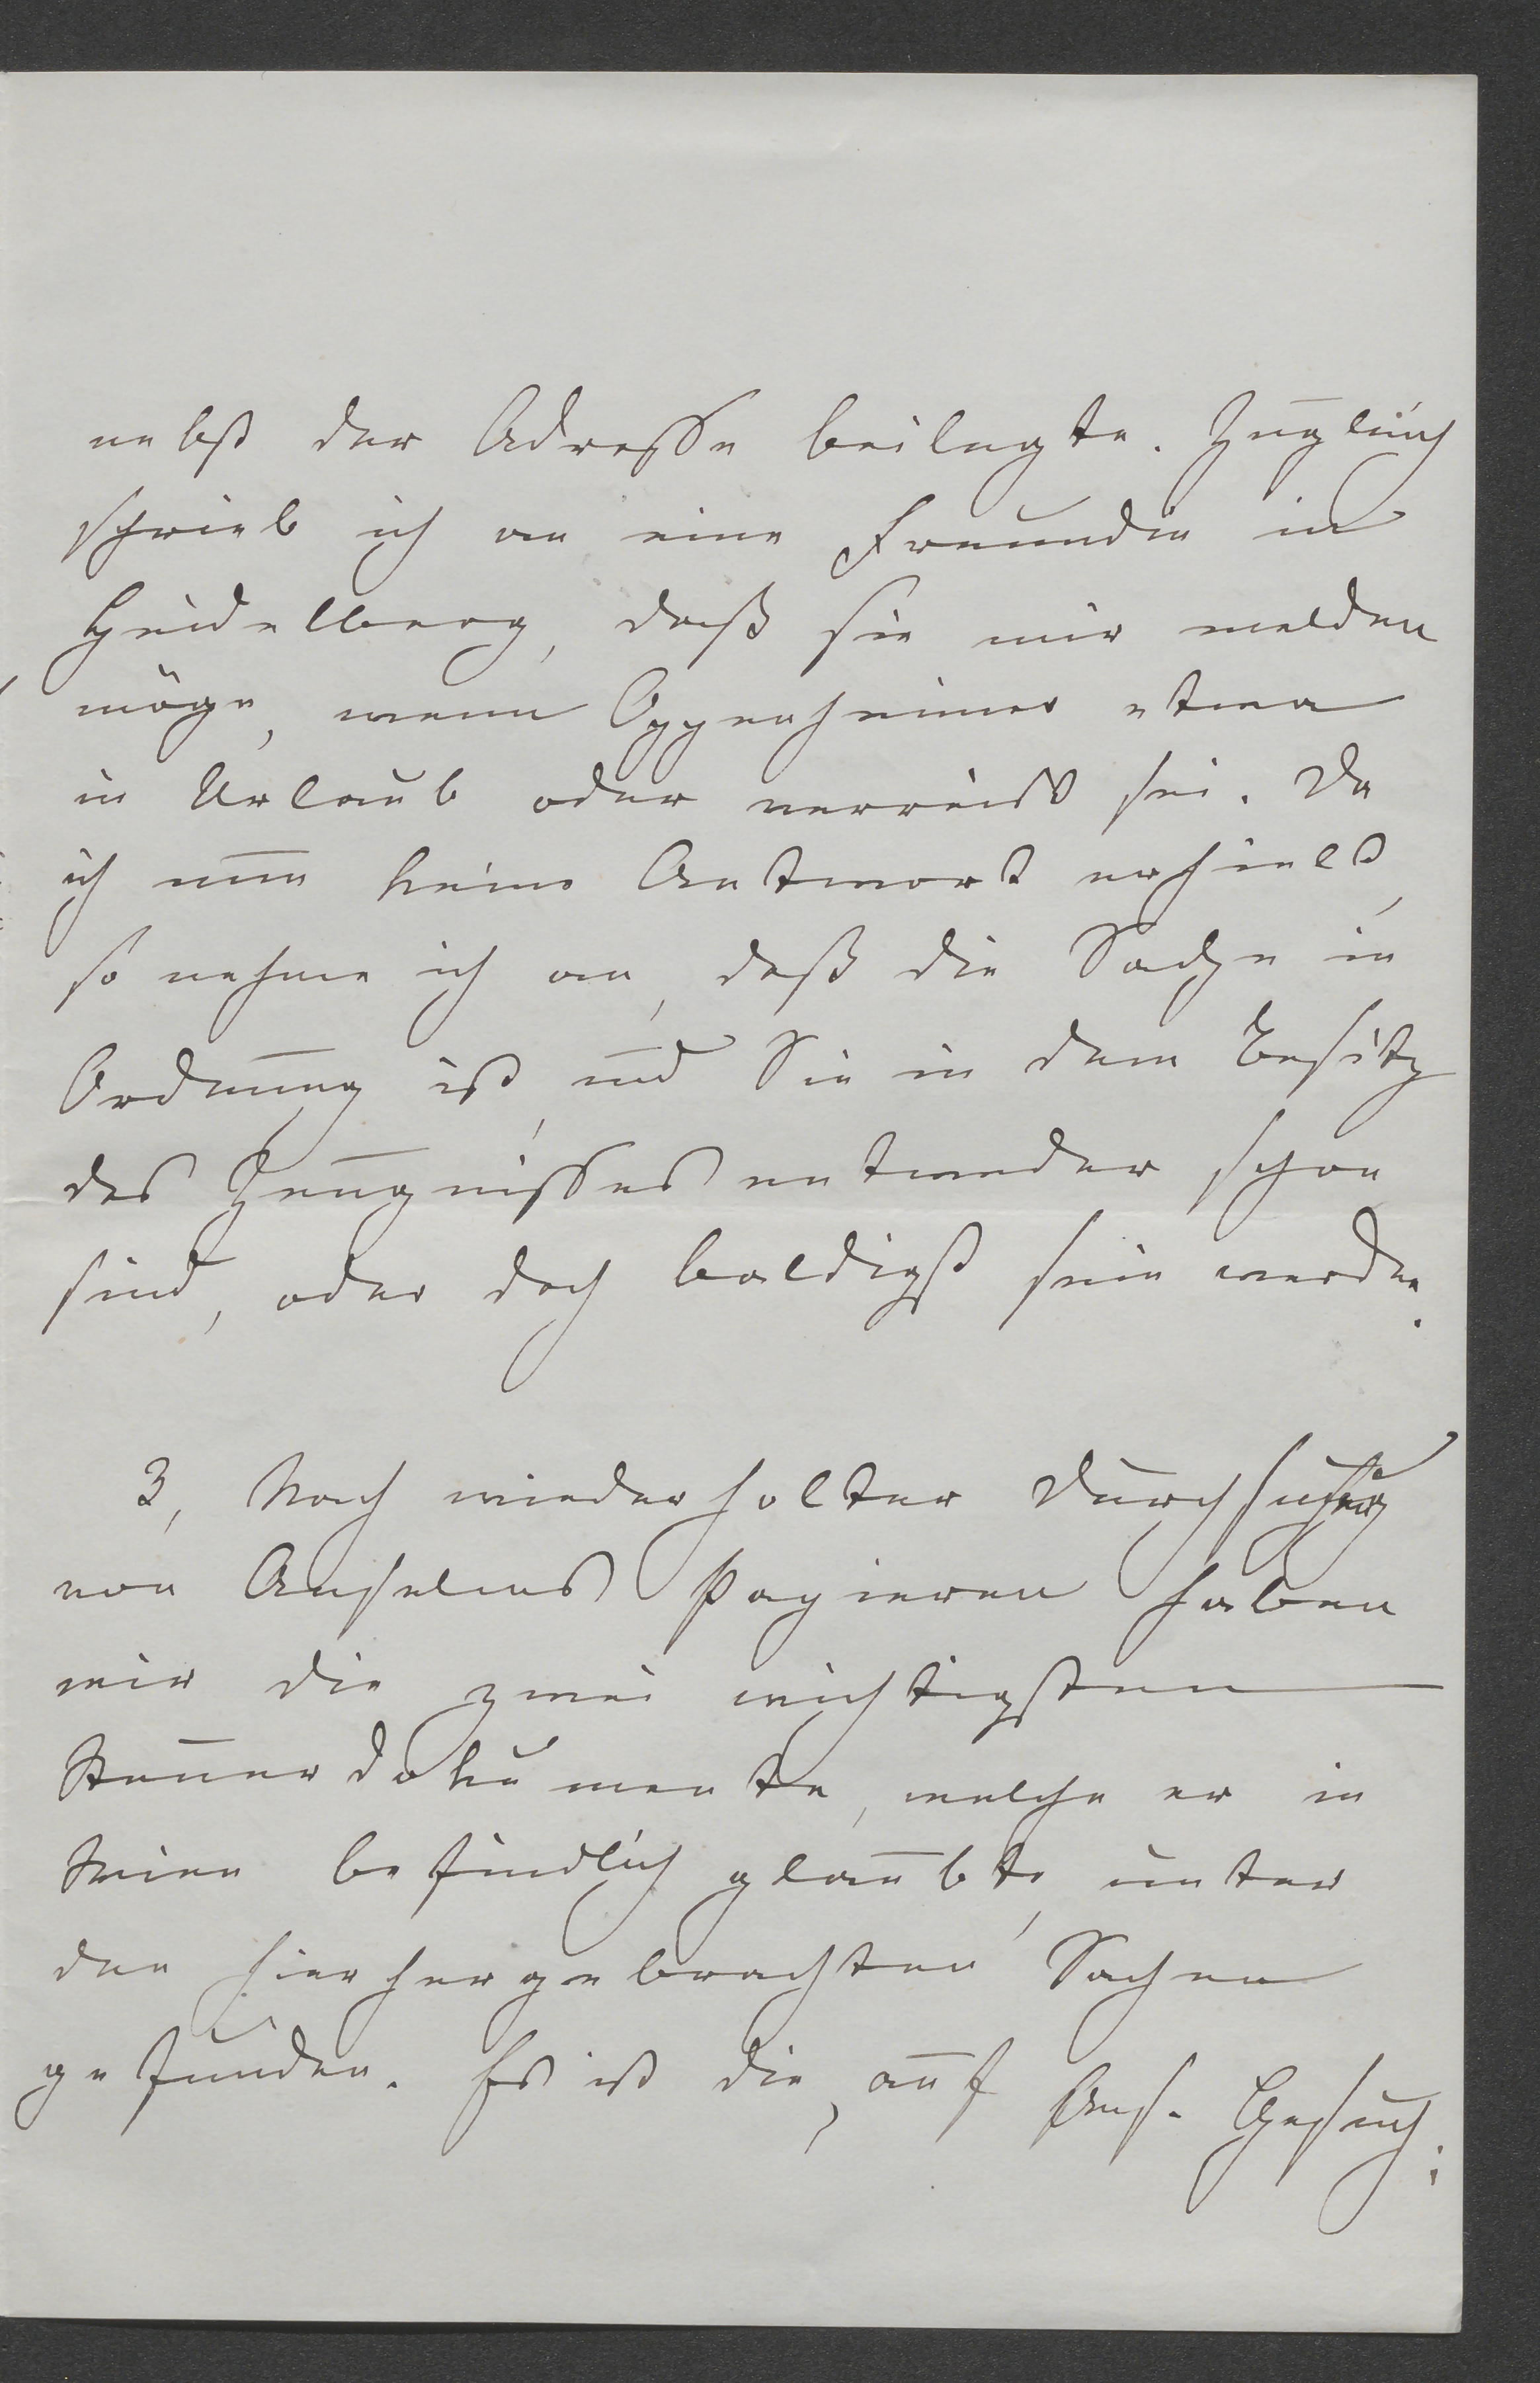 nebst der Adresse beilegte. Zugleich
schrieb ich an eine Freundin in
Heidelberg, daß sie mir melden
möge, wenn Oppenheimer etwa
in Urlaub oder verreist sei. Da
ich nun keine Antwort erhielt,
so nehme ich an, daß die Sache in
Ordnung ist, und Sie in dem Besitz
des Zeugnisses entweder schon
sind, oder doch baldigst sein werden.
3, Nach wiederholter Durchsuchung
von Anselms Papieren haben
wir die zwei wichtigsten
Steuerdokumente, welche er in
Wien befindlich glaubte, unter
den hierhergebrachten Sachen
gefunden. Es ist die, auf Ans. Gesuch: